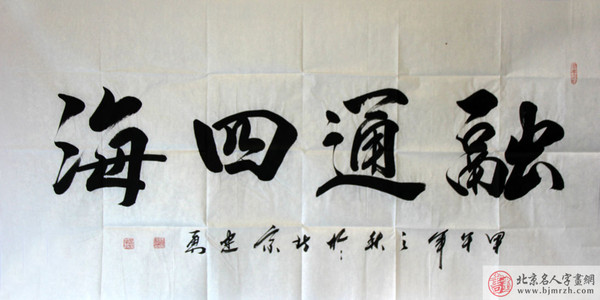 融通四海
甲午年之秋於北京建勇
北京名人字畫網
www.bjmrzh.com